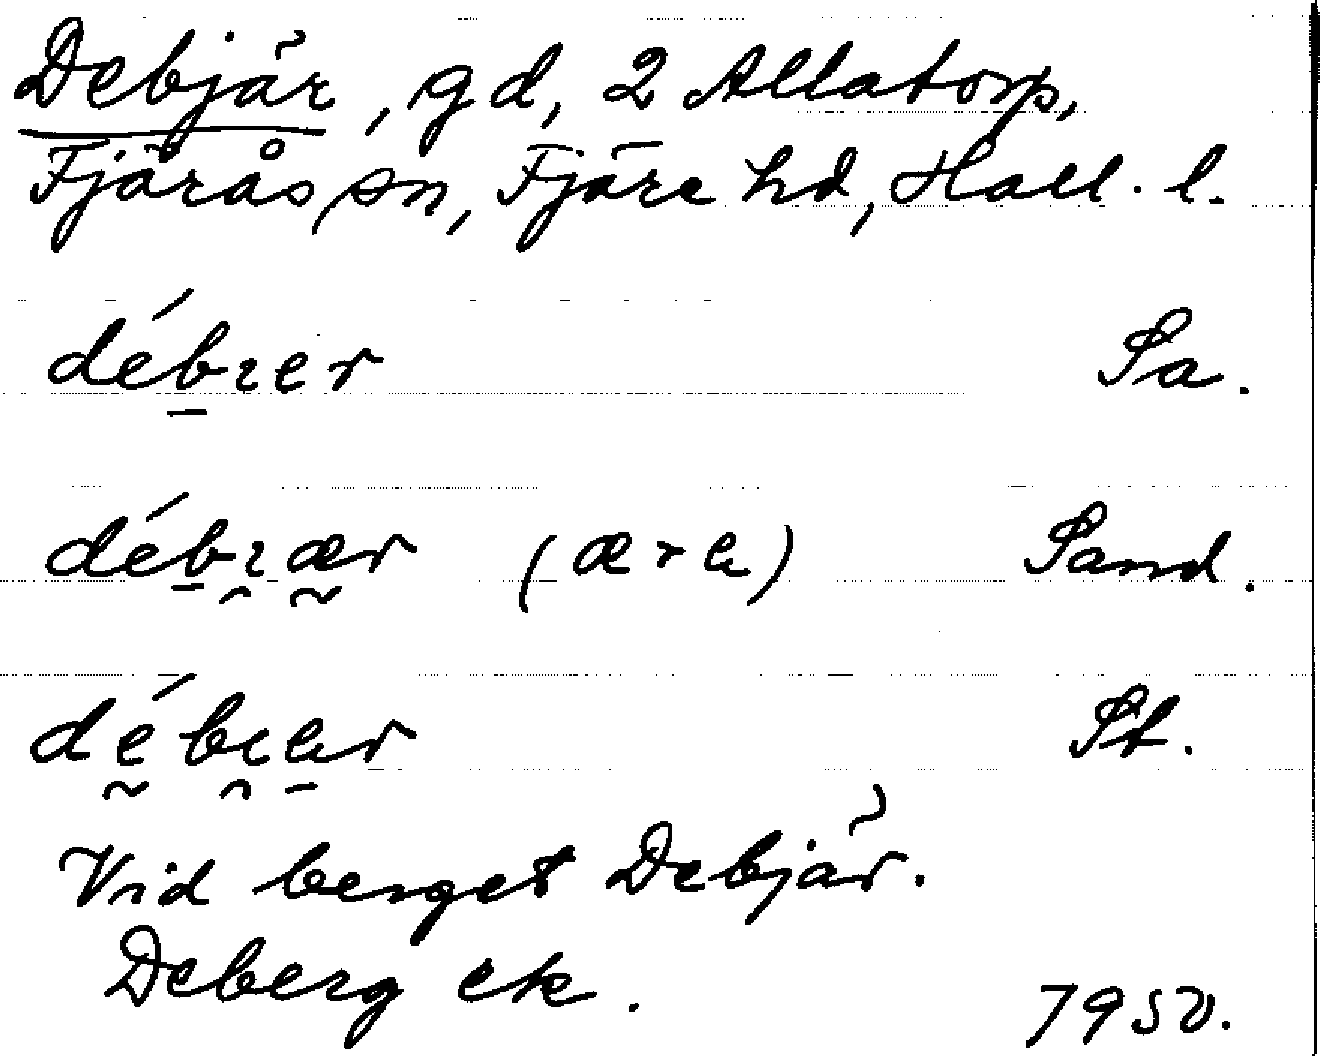 Debjär, gd, 2 Allatorp,
Fjärås sn, Fjäre hd, Hall. l.
débɪer Sa.
débɪær (æ+a) Sand.
débɪar St.
Vid berget Debjär.
Deberg ek. 1950.